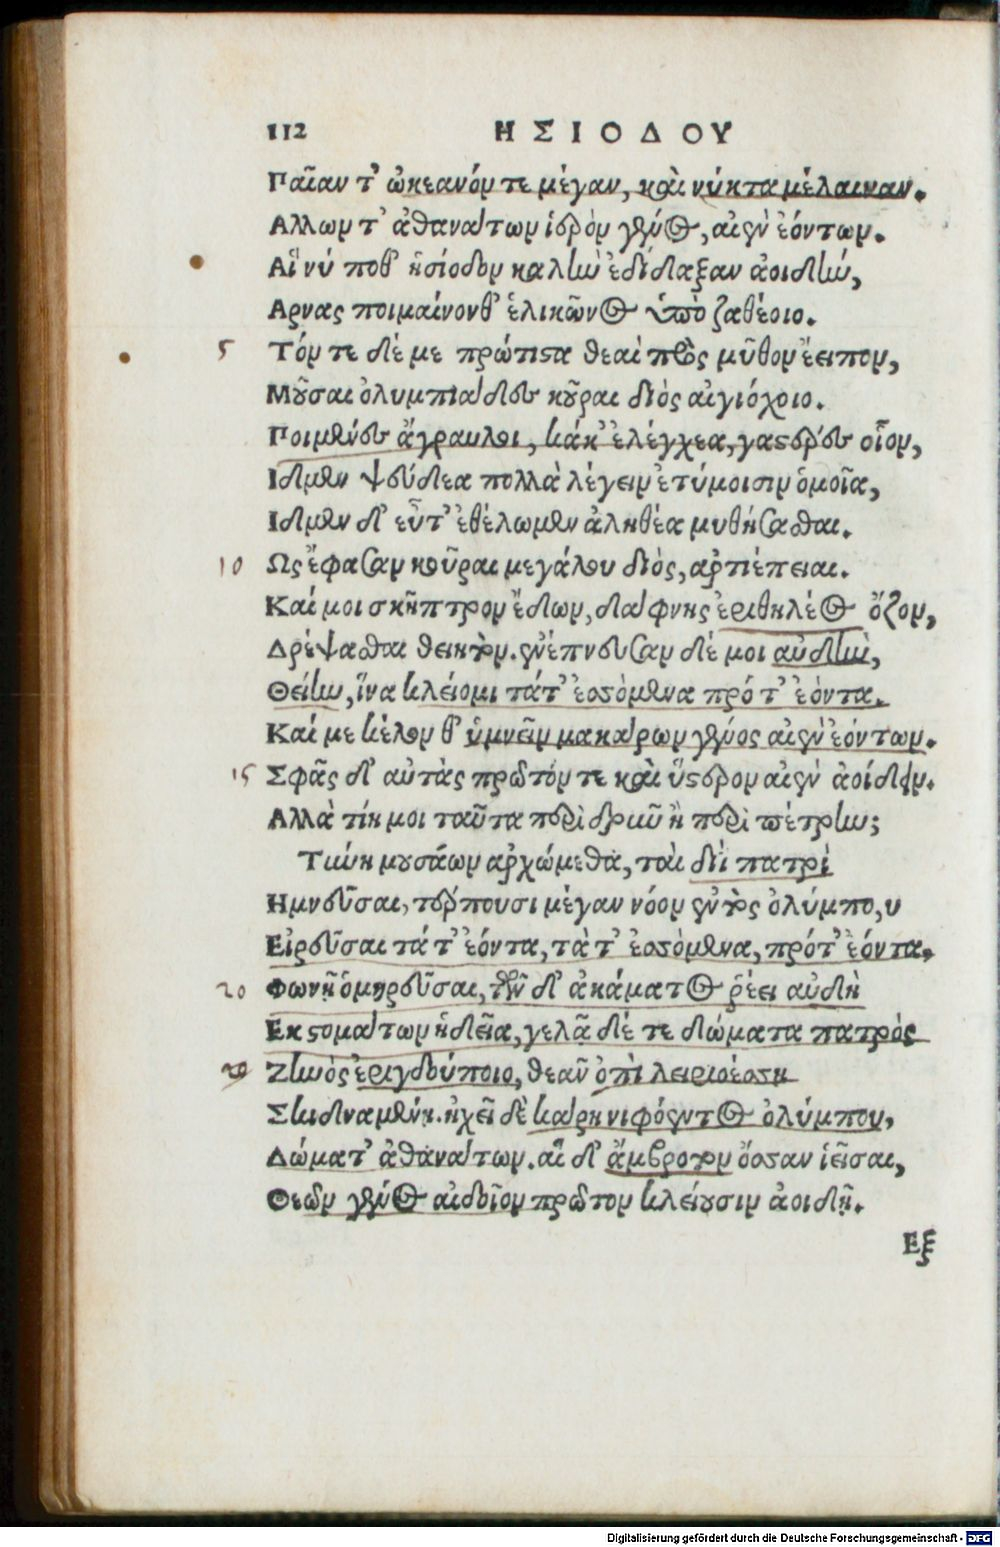 112 ΗΣΙΟΔΟΥ
Γαῖαν τ' ὠκεανόν τε μέγαν, καὶ νύκτα μέλαιναν.
Αλλων τ' ἀθανάτων ἱερὸν γένος, αἰὲν ἐόντων.
Αἵ νύ ποθ' ἡσίοδον καλὴν ἐδίδαξαν ἀοιδὴν,
Αρνας ποιμαίνονθ' ἑλικῶνος ὑπὸ ζαθέοιο.
5 Τόν τε δέ με πρώτιστα θεαὶ πρὸς μῦθον ἔειπον,
Μοῦσαι ὀλυμπιάδες κοῦραι διὸς αἰγιόχοιο.
Ποιμένες ἄγραυλοι, κάκ' ἐλέγχεα, γαστέρες οἶον,
Ιδμεν ψεύδεα πολλὰ λέγειν ἐτύμοισιν ὁμοῖα,
Ιδμεν δ' εὖτ' ἐθέλωμεν ἀληθέα μυθήσασθαι.
10 Ως ἔφασαν κοῦραι μεγάλου διὸς, ἀρτιέπειαι.
Καί μοι σκῆπτρον ἔδων, δάφνης ἐριθηλέος ὄζον,
Δρέψασθαι θειητόν. ἐνέπνευσαν δέ μοι αὐδὴν,
Θείην, ἵνα κλείοιμι τά τ' ἐσσόμενα πρό τ' ἐόντα.
Καί με κέλον θ' ὑμνεῖν μακάρων γένος αἰὲν ἐόντων.
15 Σφᾶς δ' αὐτὰς πρῶτόν τε καὶ ὕστερον αἰὲν ἀείδειν.
Αλλὰ τίη μοι ταῦτα περὶ δρυῦ ἢ περὶ πέτρην;
Τύνη μουσάων ἀρχώμεθα, ταὶ διὶ πατρὶ
Ημνεῦσαι, τέρπουσι μέγαν νόον ἐντὸς ὀλύμπο,υ
Εἰρεῦσαι τά τ' ἐόντα, τά τ' ἐσσόμενα, πρό τ' ἐόντα,
20 Φωνῇ ὁμηρεῦσαι, τῶν δ' ἀκάματος ῥέει αὐδὴ
Εκ στομάτων ἡδεῖα, γελᾷ δέ τε δώματα πατρὸς
Ζηνὸς ἐριγδούποιο, θεᾶν ὀπὶ λειριοέσση
Σκιδναμένη. ἠχεῖ δὲ κάρη νιφόεντος ὀλύμπου,
Δώματ' ἀθανάτων. αἳ δ' ἄμβροτον ὄσσαν ἱεῖσαι,
Θεῶν γένος αἰδοῖον πρῶτον κλείουσιν ἀοιδῇ.
Εξ
Digitalisierung gefördert durch die Deutsche Forschungsgemeinschaft - DFG